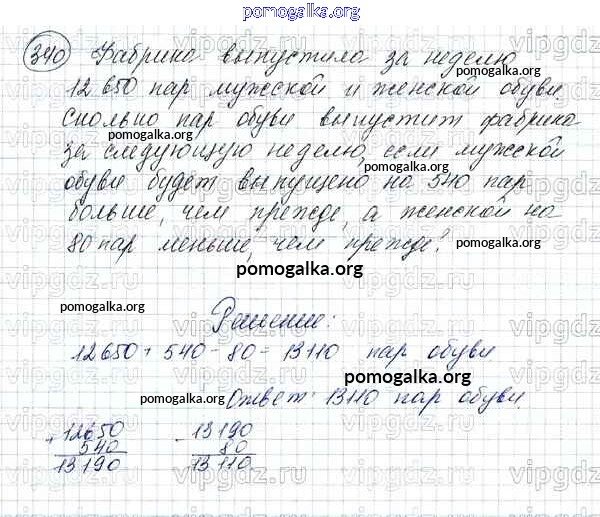 pomogalka.org
340 Фабрика выпустила за неделю
12 650 пар мужской и женской обуви.
pomogalka.org
Сколько пар обуви выпустит фабрика
pomogalka.org
за следующую неделю, если мужской
pomogalka.org
обуви будет выпущено на 540 пар
больше, чем прежде, а женской на
80 пар меньше, чем прежде?
pomogalka.org
pomogalka.org
pomogalka.org
Решение:
12650+540-80=13110 пар обуви
pomogalka.org
Ответ: 13110 пар обуви.
pomogalka.org
+12650 -13190
540 80
13190 13110
vipgdz.ru